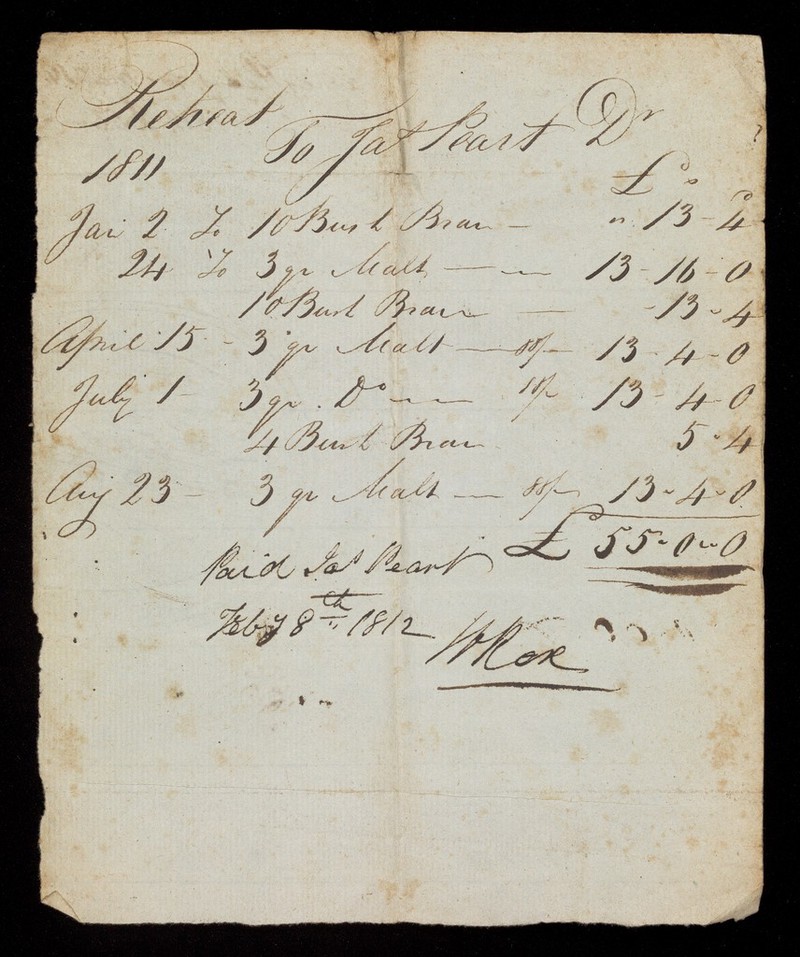 Reheat
To Jas Peart Dr
1811
£ s
Jan 2 To 10 Bush Bran — " 13 - 4
24 To 3 qr Malt — — 13 - 16 - 0
10 Bush Bran — - 13 - 4
April 15 - 3 qr Malt — 88/- 13 - 4 - 0
July 1 - 3 qr . Do — — 13 - 4 - 0
4 Bush Bran 5 - 4
Aug 23 - 3 qr Malt — 88/- 13 - 4 - 0
£ 55 - 0 - 0
Paid Jas Peart
Feby 8th 1812